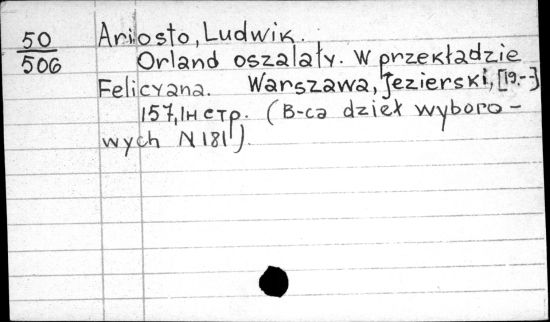 50
506
Ariosto, Ludwik.
Orland oszalały. W przekładzie
Felicyana. Warszawa, Jezierski, [19.-]
157, 1н стр. (B-ca dzieł wyboro-
wych N 181).